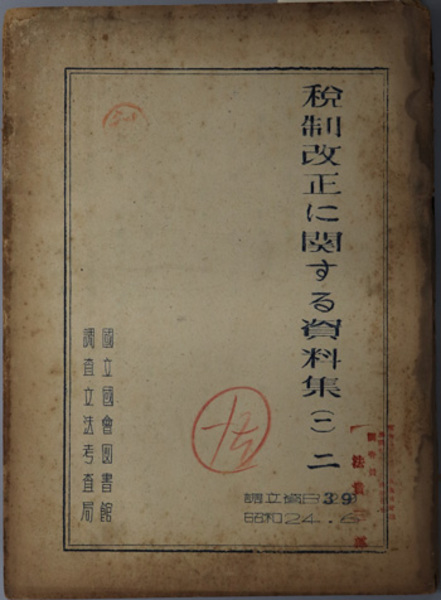 税制改正に関する資料集(一)二
調立資B39
昭和24.6
國立國會圖書館
調査立法考査局